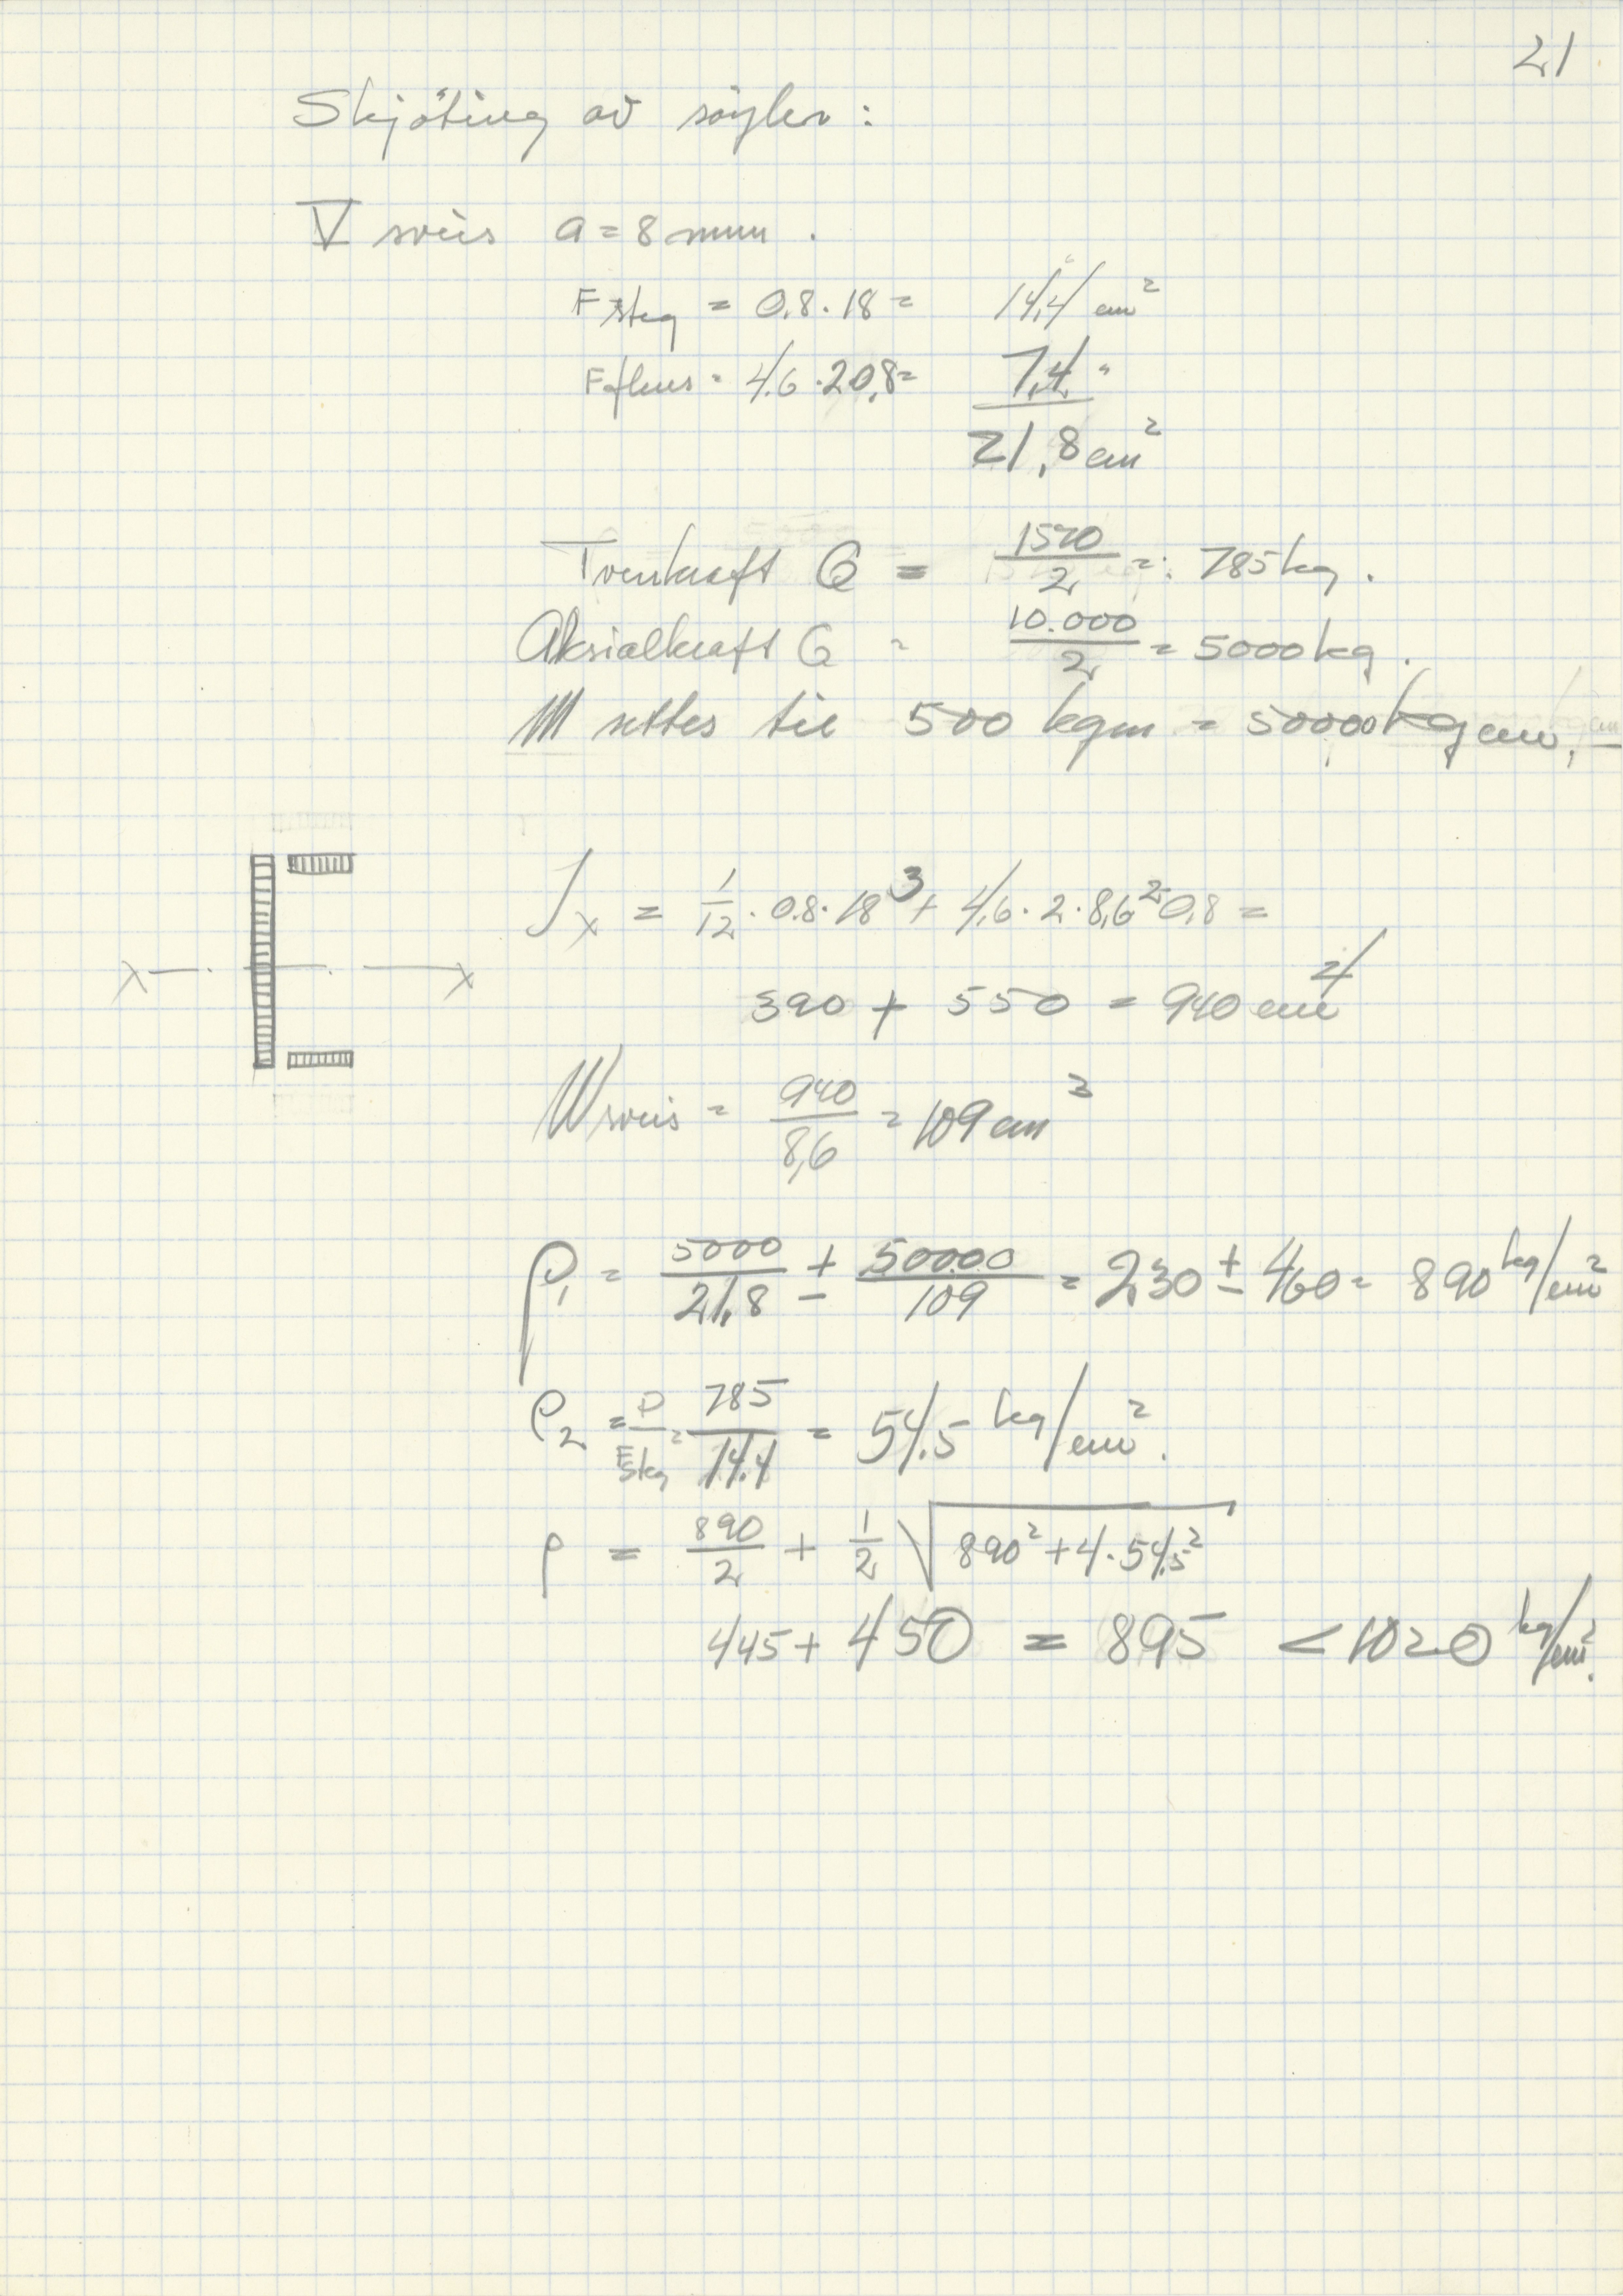 21
Skjöting av söyler:
V sveis a = 8 mm.
F steg = 0,8 · 18 = 14,4 cm²
F flens = 4,6 · 2 0,8 = 7,4 "
21,8 cm²
Tverrkraft Q = 1570/2 = 785 kg.
Aksialkraft G = 10.000/2 = 5000 kg.
M settes til 500 kgm = 50000 kgcm.
Jx = 1/12 · 0.8 · 18³ + 4,6 · 2 · 8,6² 0,8 =
X X
390 + 550 = 940 cm⁴
W sveis = 940/8,6 = 109 cm³
ρ₁ = 5000/21,8 ± 50000/109 = 230 ± 460 = 890 kg/cm²
ρ₂ = P/F steg = 785/14,4 = 54,5 kg/cm².
ρ = 890/2 + 1/2 √890² + 4 · 54,5²
445 + 450 = 895 < 1020 kg/cm².